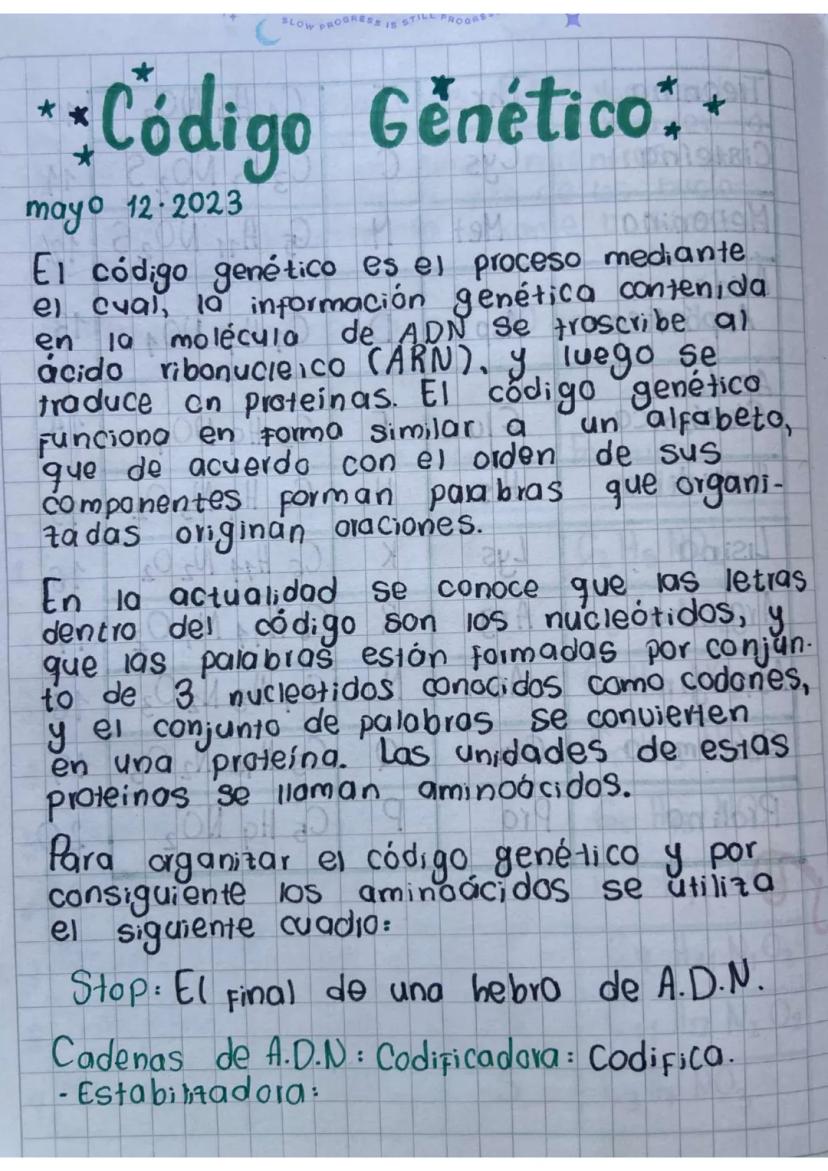 SLOW PROGRESS IS STILL PROGRESS
Código Genético
mayo 12·2023
El código genético es el proceso mediante
el cual, la información genética contenida
en la molécula de ADN se troscribe al
ácido ribonucleico (ARN), y luego se
traduce en proteínas. El código genético
funciona en forma similar a un alfabeto,
que de acuerdo con el orden de sus
componentes forman parabras que organi-
zadas originan oraciones.
En la actualidad se conoce que las letras
dentro del código son los nucleótidos, y
que las palabras están formadas por conjun-
to de 3 nucleotidos conocidos como codones,
y el conjunto de palabras se convierten
en una proteína. Las unidades de estas
proteinas se llaman aminoácidos.
Para organizar el código genético y por
consiguiente los aminoácidos se utiliza
el siguiente cuadro:
Stop: El final de una hebra de A.D.N.
Cadenas de A.D.N: Codificadora: Codifica.
- Estabilizadora: